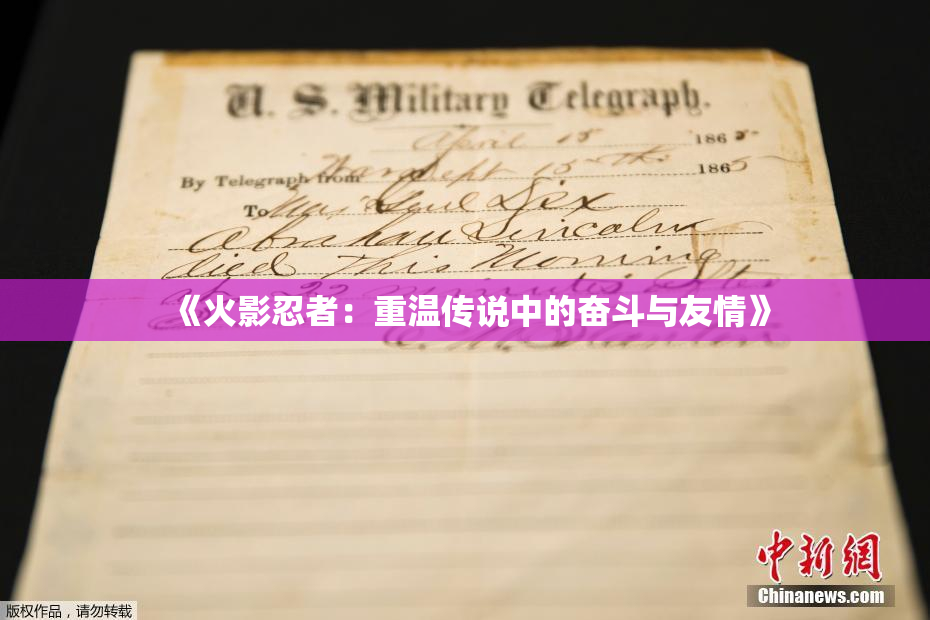 U. S. Military Telegraph.
April 15 1865
By Telegraph from War Dept 15th 1865
To Maj Genl Dix
Abraham Lincoln
died This Morning
at 22 minutes after
《火影忍者：重温传说中的奋斗与友情》
E. M. Stanton
中新网
Chinanews.com
版权作品，请勿转载